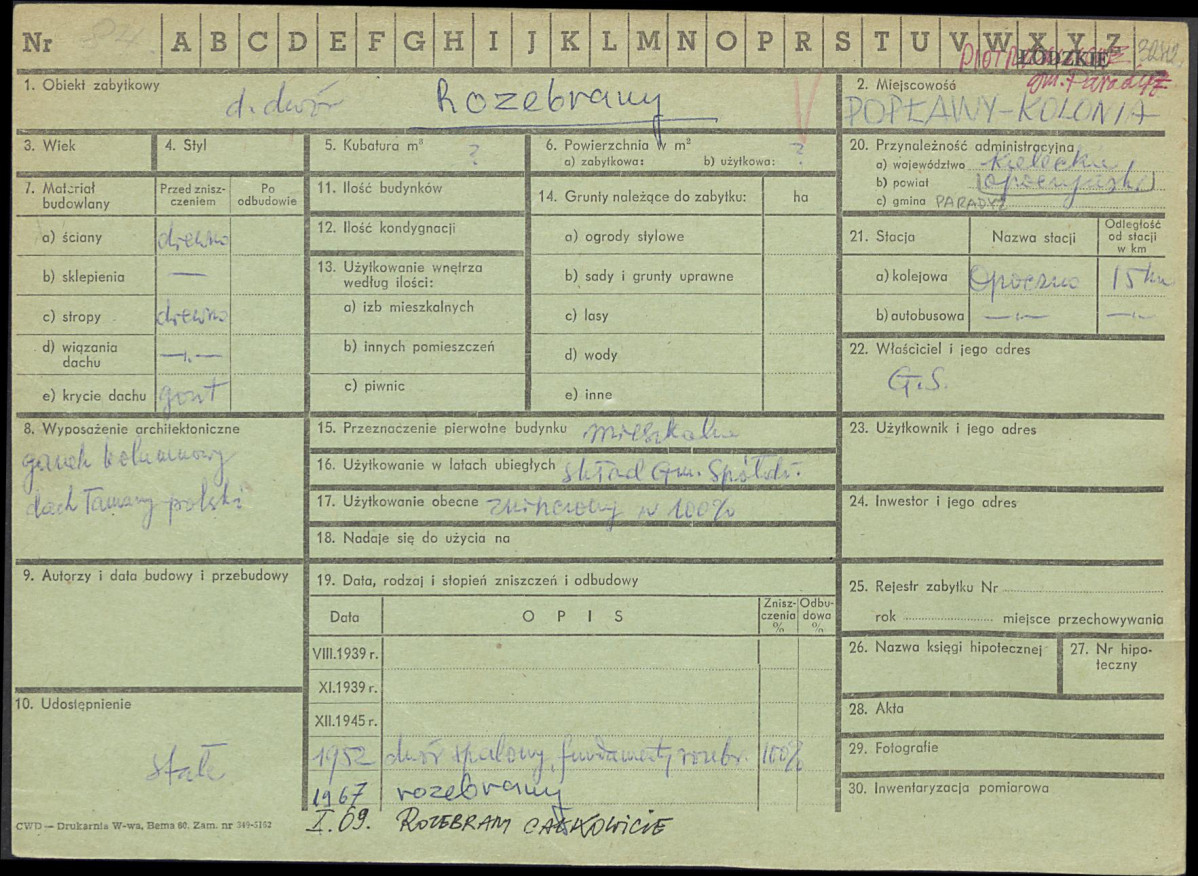 Nr 84. A B C D E F G H I J K L M N O P R S T U V W X Y Z
ŁÓDZKIE
gm. Paradyż
1. Obiekt zabytkowy
d. dwór Rozebrany
2. Miejscowość
POPŁAWY-KOLONIA
3. Wiek
4. Styl
5. Kubatura m³ ?
6. Powierzchnia w m²
a) zabytkowa: b) użytkowa: ?
20. Przynależność administracyjna
a) województwo kieleckie
b) powiat opoczyński
c) gmina PARADYŻ
7. Materiał budowlany
Przed zniszczeniem
Po odbudowie
a) ściany drewno
b) sklepienia —
c) stropy drewno
d) wiązania dachu —„—
e) krycie dachu gont
11. Ilość budynków
12. Ilość kondygnacji
13. Użytkowanie wnętrza według ilości:
a) izb mieszkalnych
b) innych pomieszczeń
c) piwnic
14. Grunty należące do zabytku: ha
a) ogrody stylowe
b) sady i grunty uprawne
c) lasy
d) wody
e) inne
21. Stacja
Nazwa stacji
Odległość od stacji w km
a) kolejowa Opoczno 15 km
b) autobusowa —„— —„—
22. Właściciel i jego adres
G.S.
8. Wyposażenie architektoniczne
ganek kolumnowy
dach łamany polski
15. Przeznaczenie pierwotne budynku mieszkalne
16. Użytkowanie w latach ubiegłych skład Gm. Spółdz.
17. Użytkowanie obecne zniszczony w 100%
18. Nadaje się do użycia na
23. Użytkownik i jego adres
24. Inwestor i jego adres
9. Autorzy i data budowy i przebudowy
19. Data, rodzaj i stopień zniszczeń i odbudowy
Data
OPIS
Zniszczenia %
Odbudowa %
VIII.1939 r.
XI.1939 r.
XII.1945 r.
1952 dwór spalony, fundamenty rozebr. 100%
1967 rozebrany
I.69. ROZEBRANY CAŁKOWICIE
25. Rejestr zabytku Nr
rok miejsce przechowywania
26. Nazwa księgi hipotecznej
27. Nr hipoteczny
28. Akta
29. Fotografie
30. Inwentaryzacja pomiarowa
10. Udostępnienie
CWD — Drukarnia W-wa, Bema 60. Zam. nr 349-5162